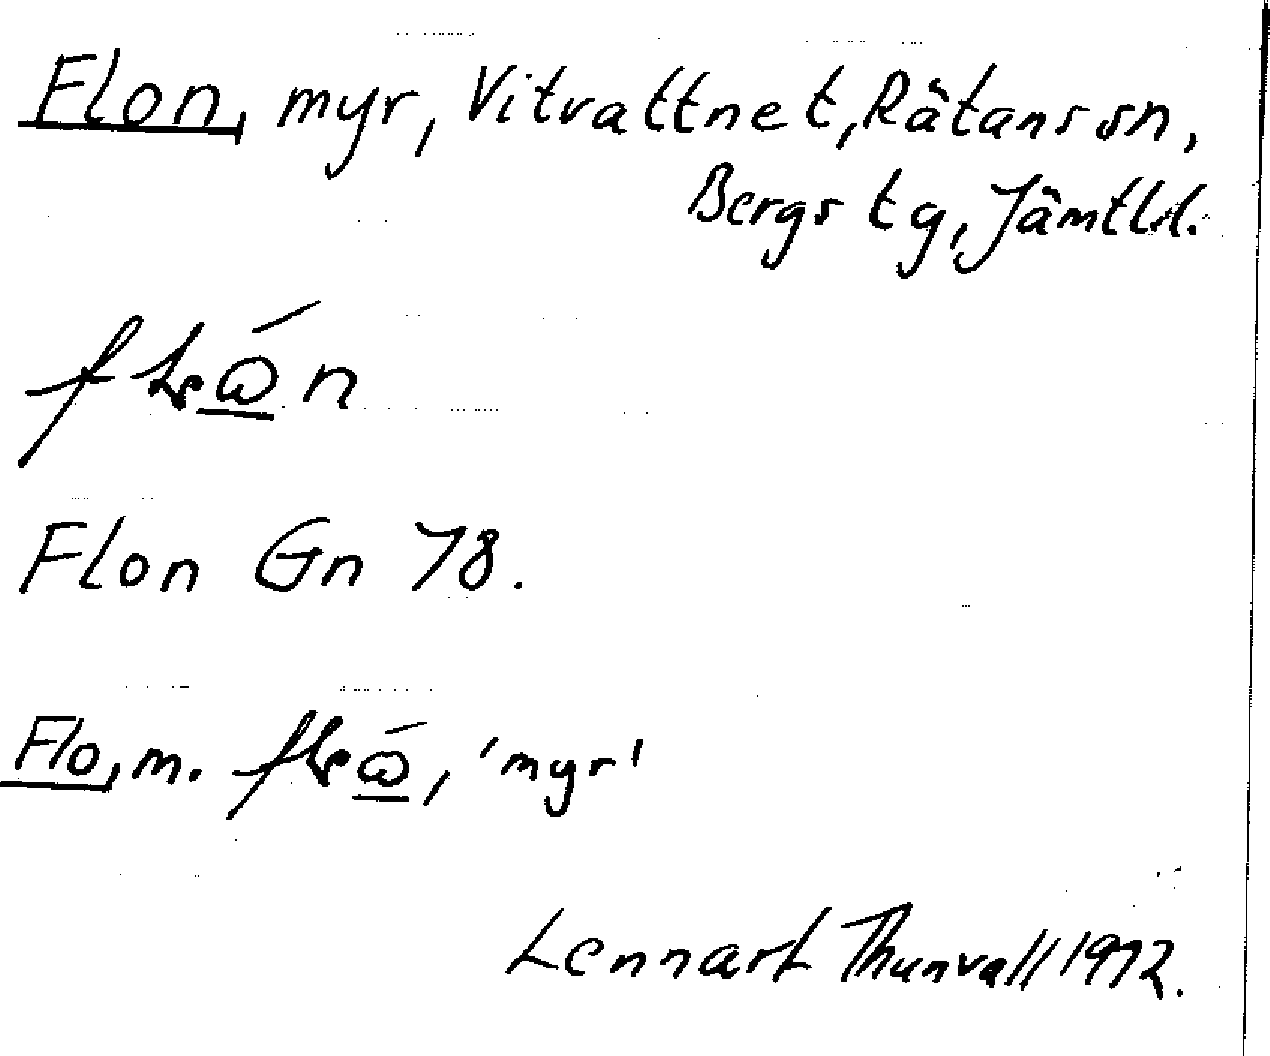 Flon, myr, Vitvattnet, Rätans sn,
Bergs tg, Jämtl.l.
Flon Gn 78.
Flo, m. , 'myr'
Lennart Thunvall 1972.